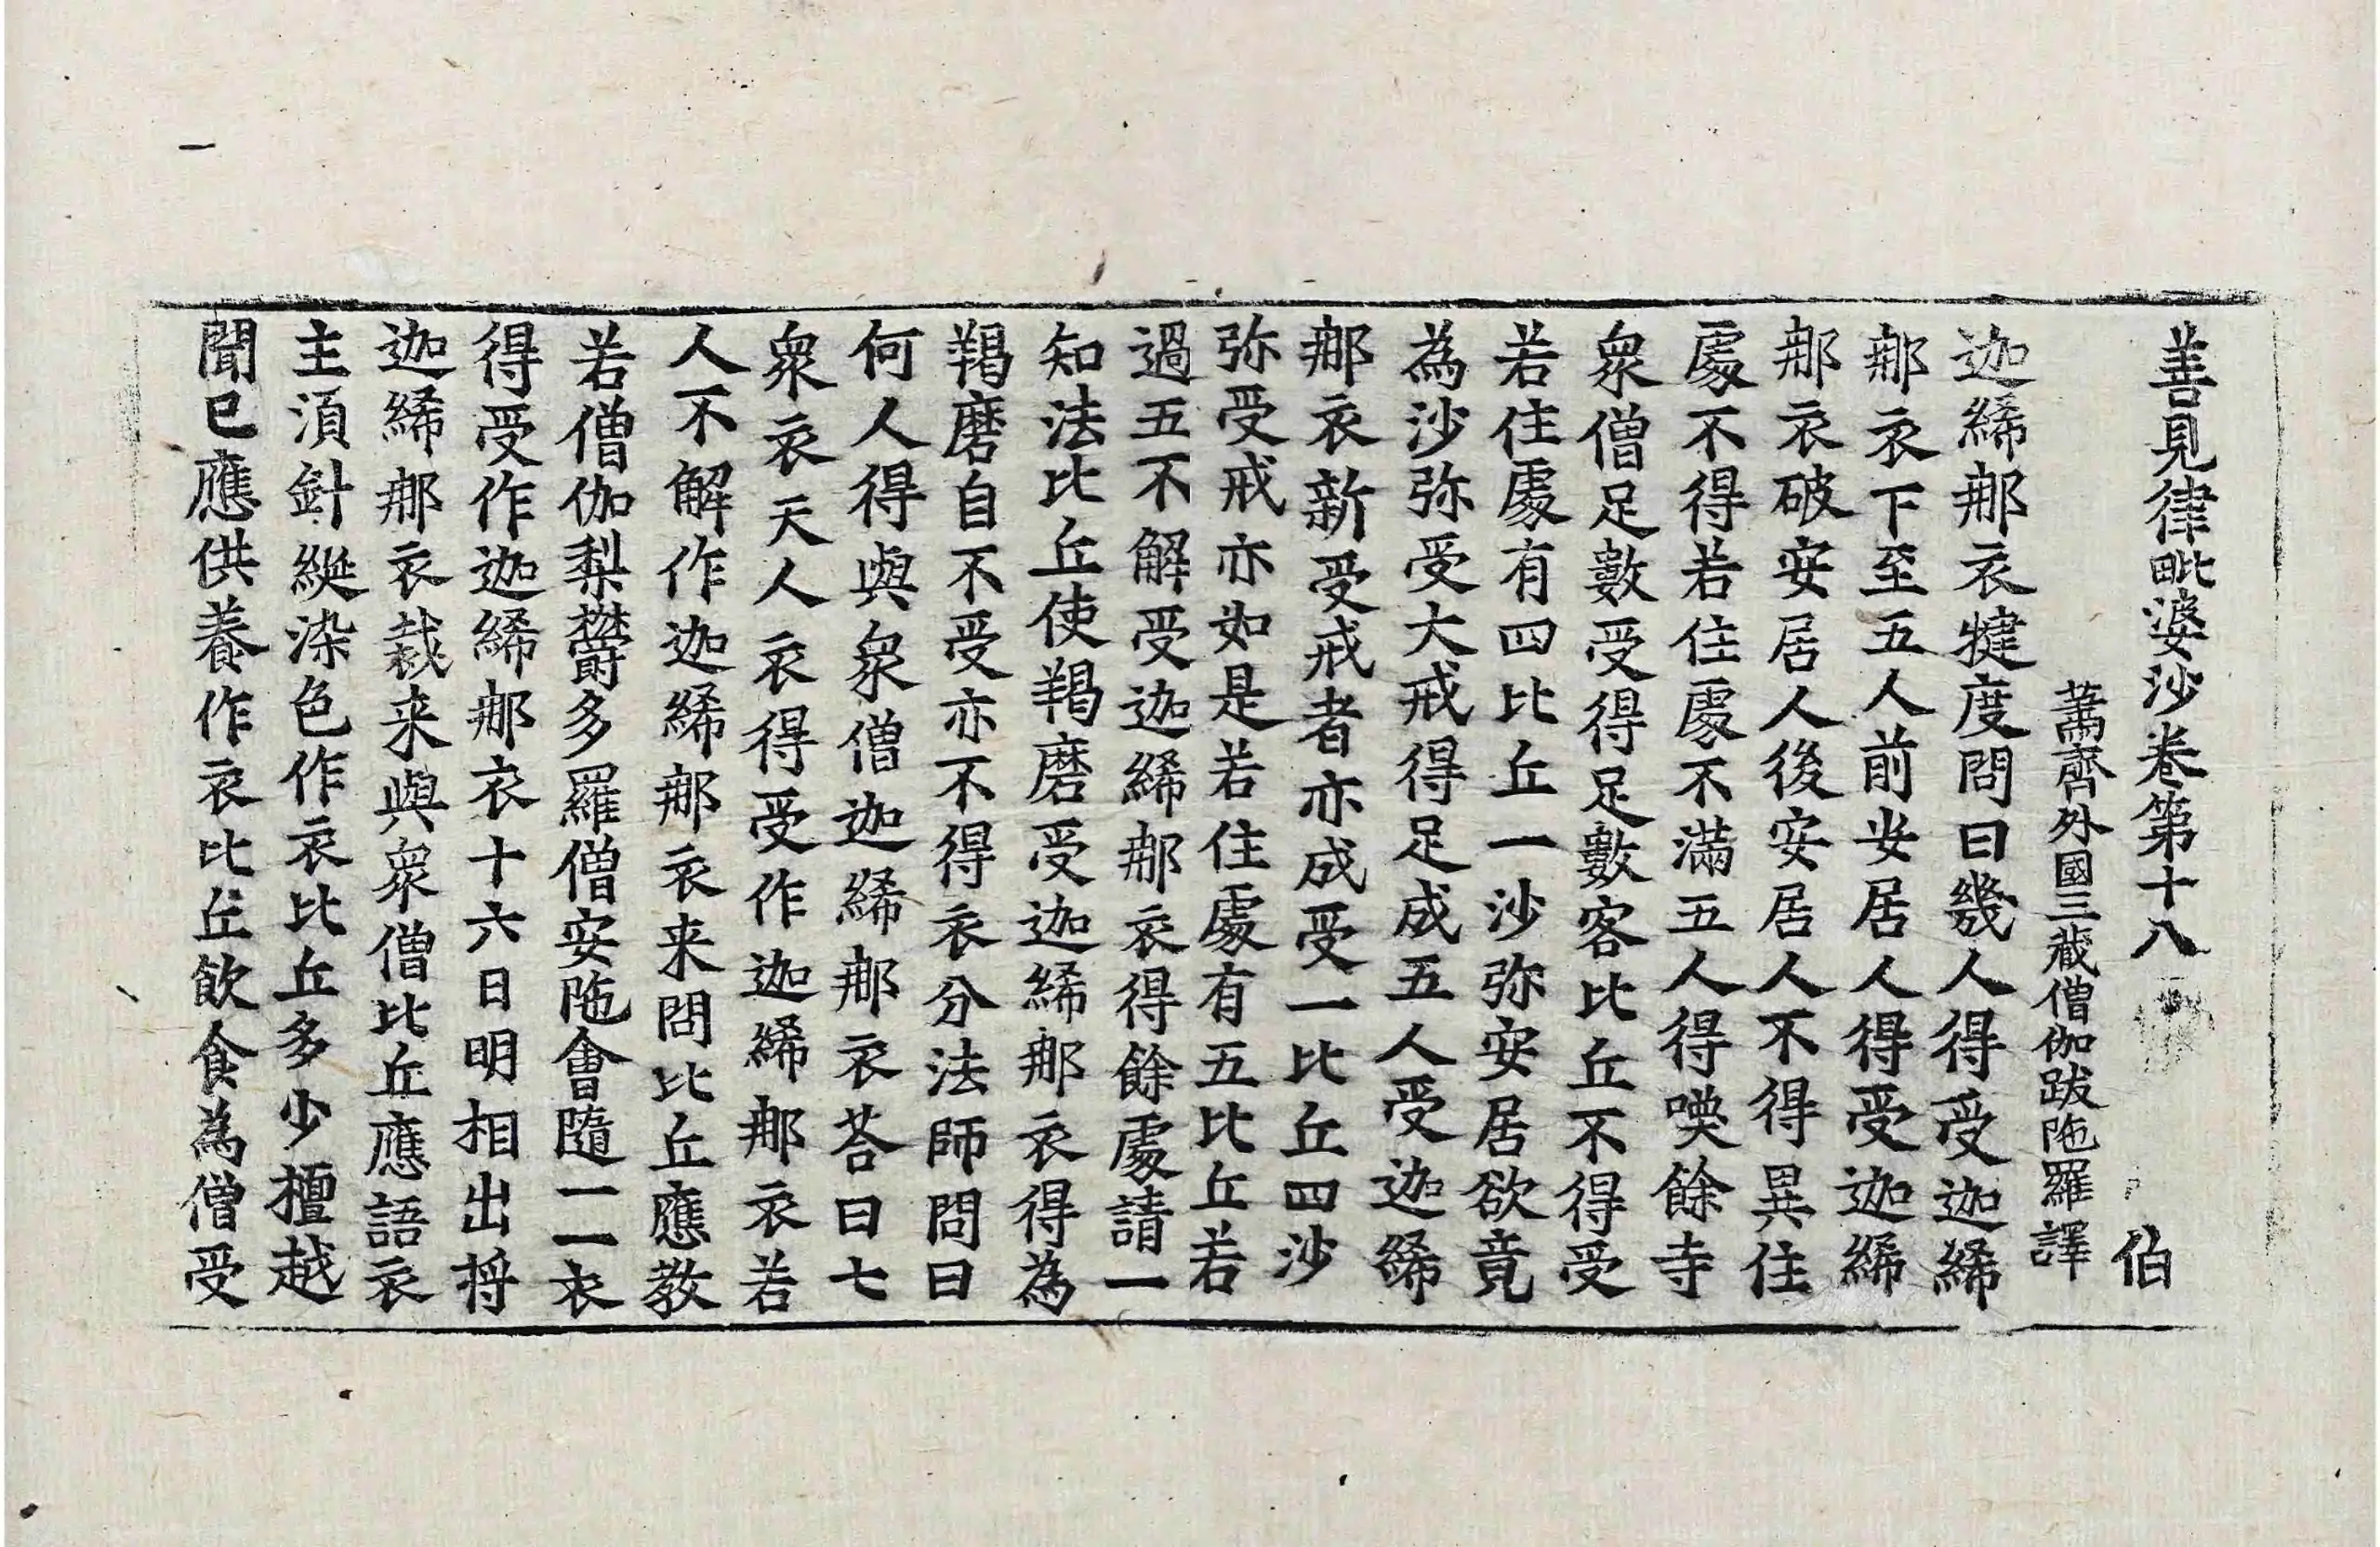 善見律毗婆沙卷第十八 伯
蕭齊外國三藏僧伽跋陁羅譯
迦絺那衣揵度問曰幾人得受迦絺
那衣下至五人前安居人得受迦絺
那衣破安居人後安居人不得異住
處不得若住處不滿五人得喚餘寺
衆僧足數受得足數客比丘不得受
若住處有四比丘一沙弥安居欲竟
為沙弥受大戒得足成五人受迦絺
那衣新受戒者亦成受一比丘四沙
弥受戒亦如是若住處有五比丘若
過五不解受迦絺那衣得餘處請一
知法比丘使羯磨受迦絺那衣得為
羯磨自不受亦不得衣分法師問曰
何人得與衆僧迦絺那衣荅曰七
衆衣天人衣得受作迦絺那衣若
人不解作迦絺那衣来問比丘應教
若僧伽梨欝多羅僧安陁會隨一一衣
得受作迦絺那衣十六日明相出將
迦絺那衣裁来與衆僧比丘應語衣
主須針綖染色作衣比丘多少檀越
聞已應供養作衣比丘飲食為僧受